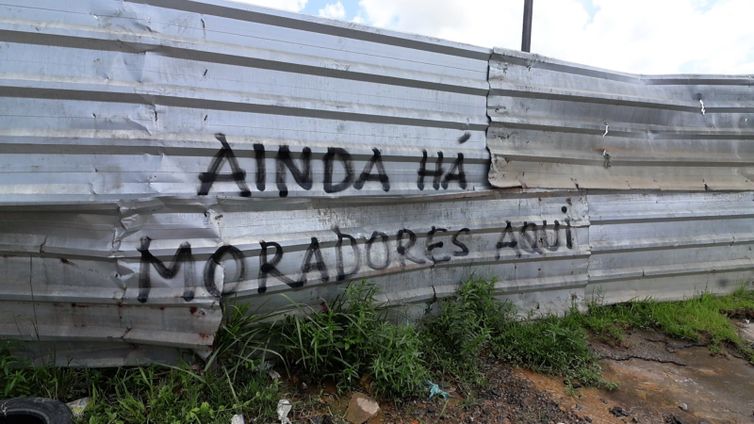 AINDA HÁ
MORADORES AQUI